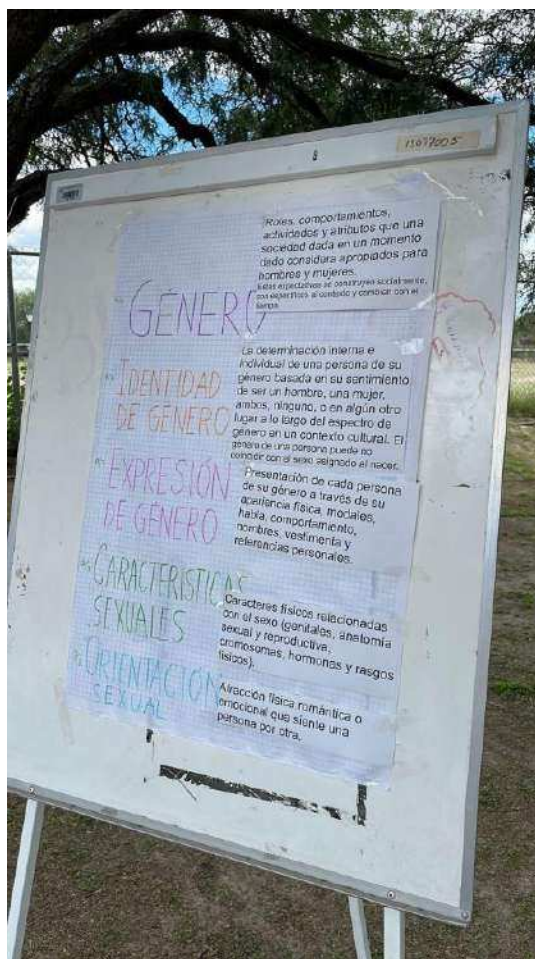 15077005
GÉNERO
Roles, comportamientos,
actividades y atributos que una
sociedad dada en un momento
dado considera apropiados para
hombres y mujeres.
Estas expectativas se construyen socialmente,
son específicas al contexto y cambian con el
tiempo.
IDENTIDAD
DE GÉNERO
La determinación interna e
individual de una persona de su
género basada en su sentimiento
de ser un hombre, una mujer,
ambos, ninguno, o en algún otro
lugar a lo largo del espectro de
género en un contexto cultural. El
género de una persona puede no
coincidir con el sexo asignado al nacer.
EXPRESIÓN
DE GÉNERO
Presentación de cada persona
de su género a través de su
apariencia física, modales,
habla, comportamiento,
nombres, vestimenta y
referencias personales.
CARACTERISTICAS
SEXUALES
Caracteres físicos relacionadas
con el sexo (genitales, anatomía
sexual y reproductiva,
cromosomas, hormonas y rasgos
físicos).
ORIENTACIÓN
SEXUAL
Atracción física romántica o
emocional que siente una
persona por otra.